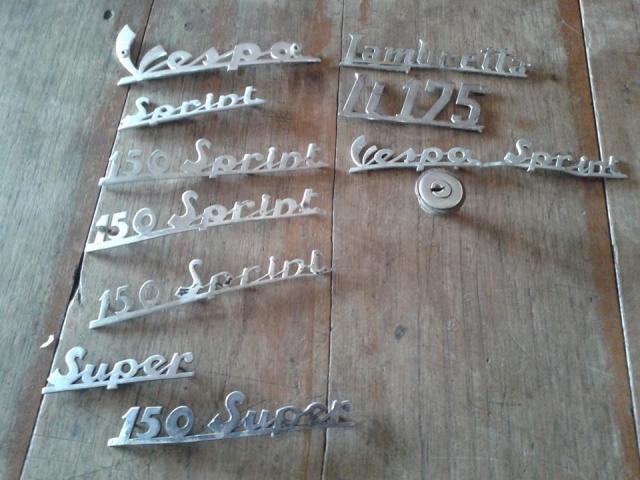 Vespa
Sprint
150 Sprint
150 Sprint
150 Sprint
Super
150 Super
Lambretta
Li 175
Vespa Sprint